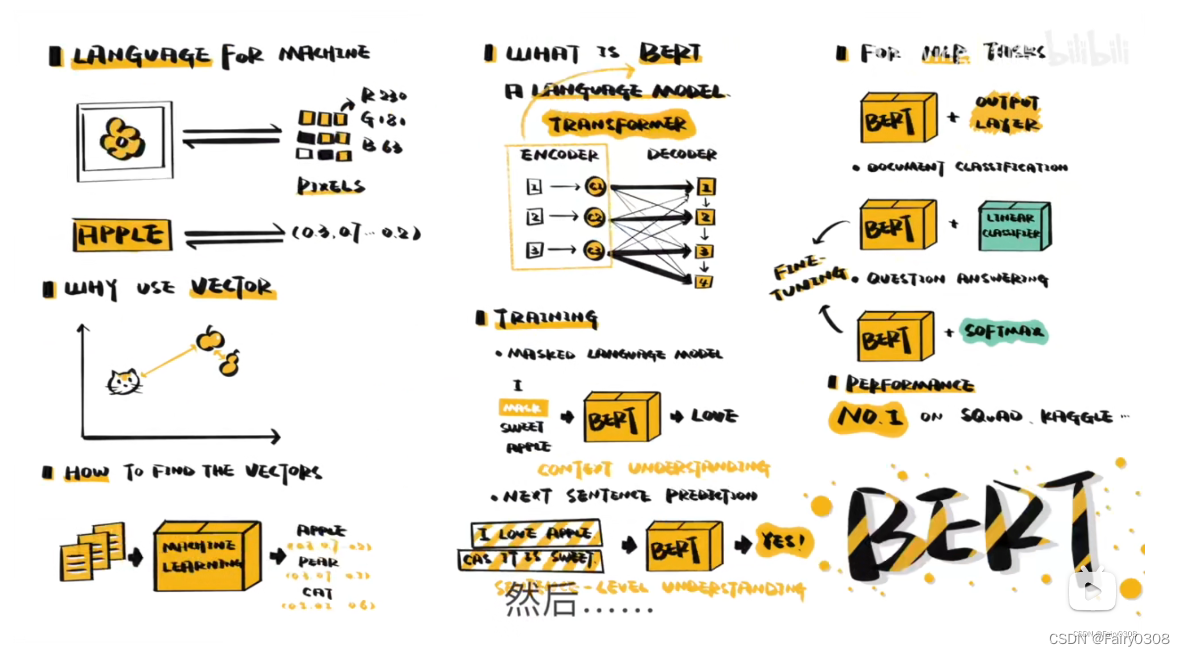 LANGUAGE FOR MACHINE
R 230
G 181
B 63
PIXELS
APPLE
(0.3, 0.7 ... 0.2)
WHY USE VECTOR
HOW TO FIND THE VECTORS
MACHINE
LEARNING
APPLE
PEAR
CAT
WHAT IS BERT
A LANGUAGE MODEL.
TRANSFORMER
ENCODER DECODER
1 C1 1
2 C2 2
3 C3 3
4
TRAINING
• MASKED LANGUAGE MODEL
I
MASK
SWEET
APPLE
BERT
LOVE
CONTEXT UNDERSTANDING
• NEXT SENTENCE PREDICTION
I LOVE APPLE
CAS IT IS SWEET.
BERT
YES!
SENTENCE-LEVEL UNDERSTANDING
然后……
FOR TASKS
bilibili
BERT + OUTPUT
LAYER
• DOCUMENT CLASSIFICATION
BERT + LINEAR
CLASSIFIER
FINE-
TUNING
• QUESTION ANSWERING
BERT + SOFTMAX
PERFORMANCE
NO.1 ON SQUAD, KAGGLE ...
BERT
CSDN @Fairy0308